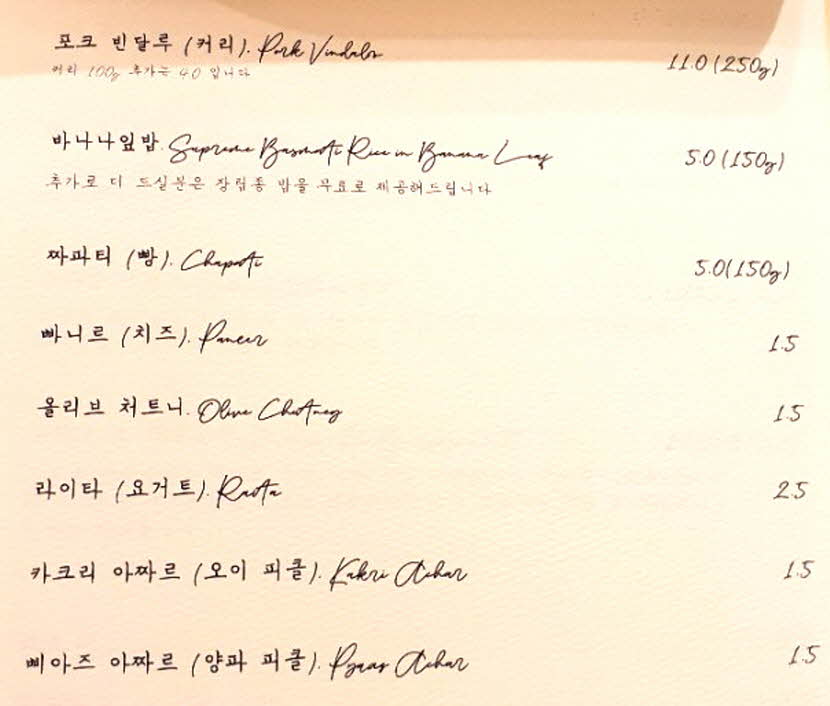 포크 빈달루 (커리). Pork Vindaloo 11.0 (250g)
커리 100g 추가는 4.0 입니다
바나나잎밥. Supreme Basmati Rice in Banana Leaf 5.0 (150g)
추가로 더 드실분은 장립종 밥을 무료로 제공해드립니다
짜파티 (빵). Chapati 5.0(150g)
빠니르 (치즈). Paneer 1.5
올리브 처트니. Olive Chutney 1.5
라이타 (요거트). Raita 2.5
카크리 아짜르 (오이 피클). Kakri Achar 1.5
삐아즈 아짜르 (양파 피클). Pyaaz Achar 1.5